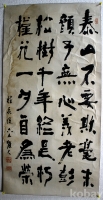 泰山不要欺毫末
顏子無心羨老彭
松樹千年終是朽
槿花一日自為榮
kobay